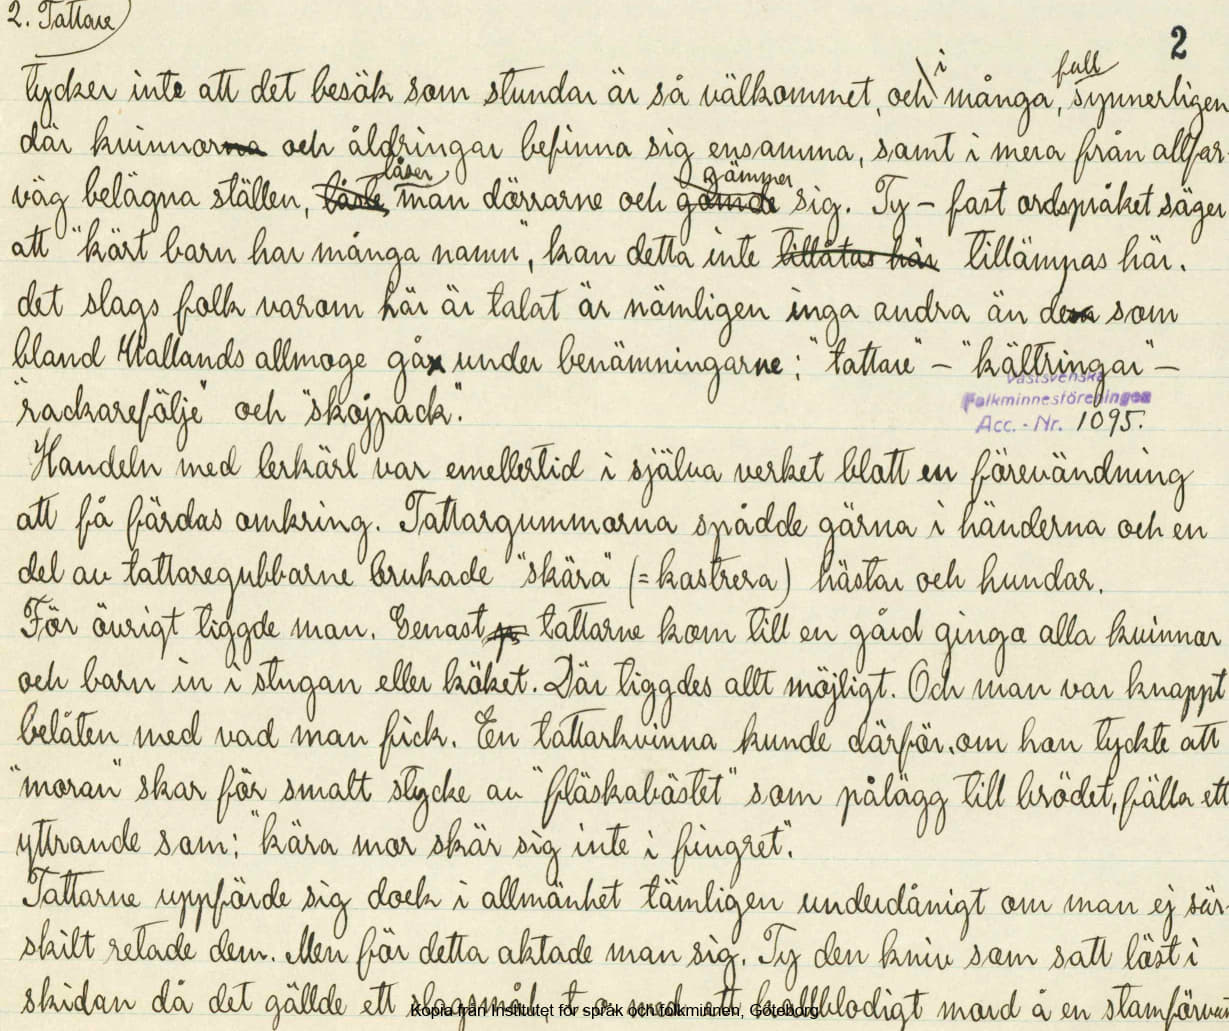 2. Tattare
2
tycker inte att det besök som stundar är så välkommet, och i många fall, synnerligen
där kvinnorna och åldringar befinna sig ensamma, samt i mera från allfar-
väg belägna ställen, låste låser man dörrarne och gömde gömmer sig. Ty – fast ordspråket säger
att "kärt barn har många namn", kan detta inte tillåtas här tillämpas här.
det slags folk varom här är talat är nämligen inga andra än de som
bland Hallands allmoge gå under benämningarne: "tattare" – "kältringar" –
Västsvenska
"rackarefölje" och "skojpack".
Folkminnesföreningen
Acc. - Nr. 1095.
Handeln med lerkärl var emellertid i själva verket blott en förevändning
att få färdas omkring. Tattargummorna spådde gärna i händerna och en
del av tattaregubbarne brukade "skära" (= kastrera) hästar och hundar.
För övrigt tiggde man. Genast tattarne kom till en gård gingo alla kvinnor
och barn in i stugan eller köket. Där tiggdes allt möjligt. Och man var knappt
belåten med vad man fick. En tattarkvinna kunde därför, om hon tyckte att
"moran" skar för smalt stycke av "fläskabästet" som pålägg till brödet, fälla ett
yttrande som: "kära mor skär sig inte i fingret".
Tattarne uppförde sig dock i allmänhet tämligen underdånigt om man ej sär-
skilt retade dem. Men för detta aktade man sig. Ty den kniv som satt löst i
skidan då det gällde ett slagsmål, t o med ett kallblodigt mord å en stamförvan
Kopia från Institutet för språk och folkminnen, Göteborg